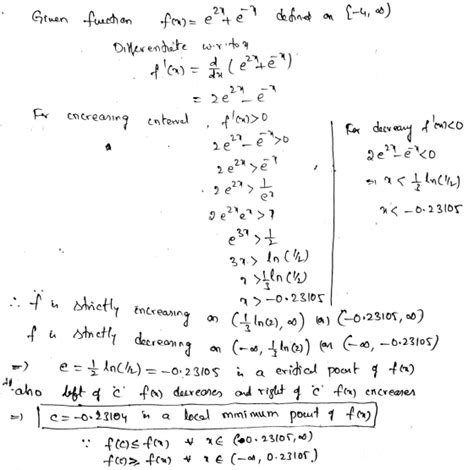 Given function f(x) = e^{2x} + e^{-x} defined on [-4, ∞)
Differentiate w.r. to x
f'(x) = d/dx (e^{2x} + e^{-x})
= 2e^{2x} - e^{-x}
For encreasing enterval, f'(x) > 0
2e^{2x} - e^{-x} > 0
2e^{2x} > e^{-x}
2e^{2x} > 1/e^x
2e^{2x} e^x > 1
e^{3x} > 1/2
3x > ln(1/2)
x > 1/3 ln(1/2)
x > -0.23105
For decreasy f'(x) < 0
2e^{2x} - e^{-x} < 0
⇒ x < 1/3 ln(1/2)
x < -0.23105
∴ f is strictly encreasing on (1/3 ln(2), ∞) (or) (-0.23105, ∞)
f is strictly decreasing on (-∞, 1/3 ln(2)) (or) (-∞, -0.23105)
⇒ e = 1/2 ln(1/2) = -0.23105 is a critical point of f(x)
also left of 'c' f(x) decreases and right of 'c' f(x) encreases
⇒ c = -0.23104 is a local minimum point of f(x)
∵ f(c) ≤ f(x) ∀ x ∈ (-0.23105, ∞)
f(c) ≥ f(x) ∀ x ∈ (-∞, 0.23105)